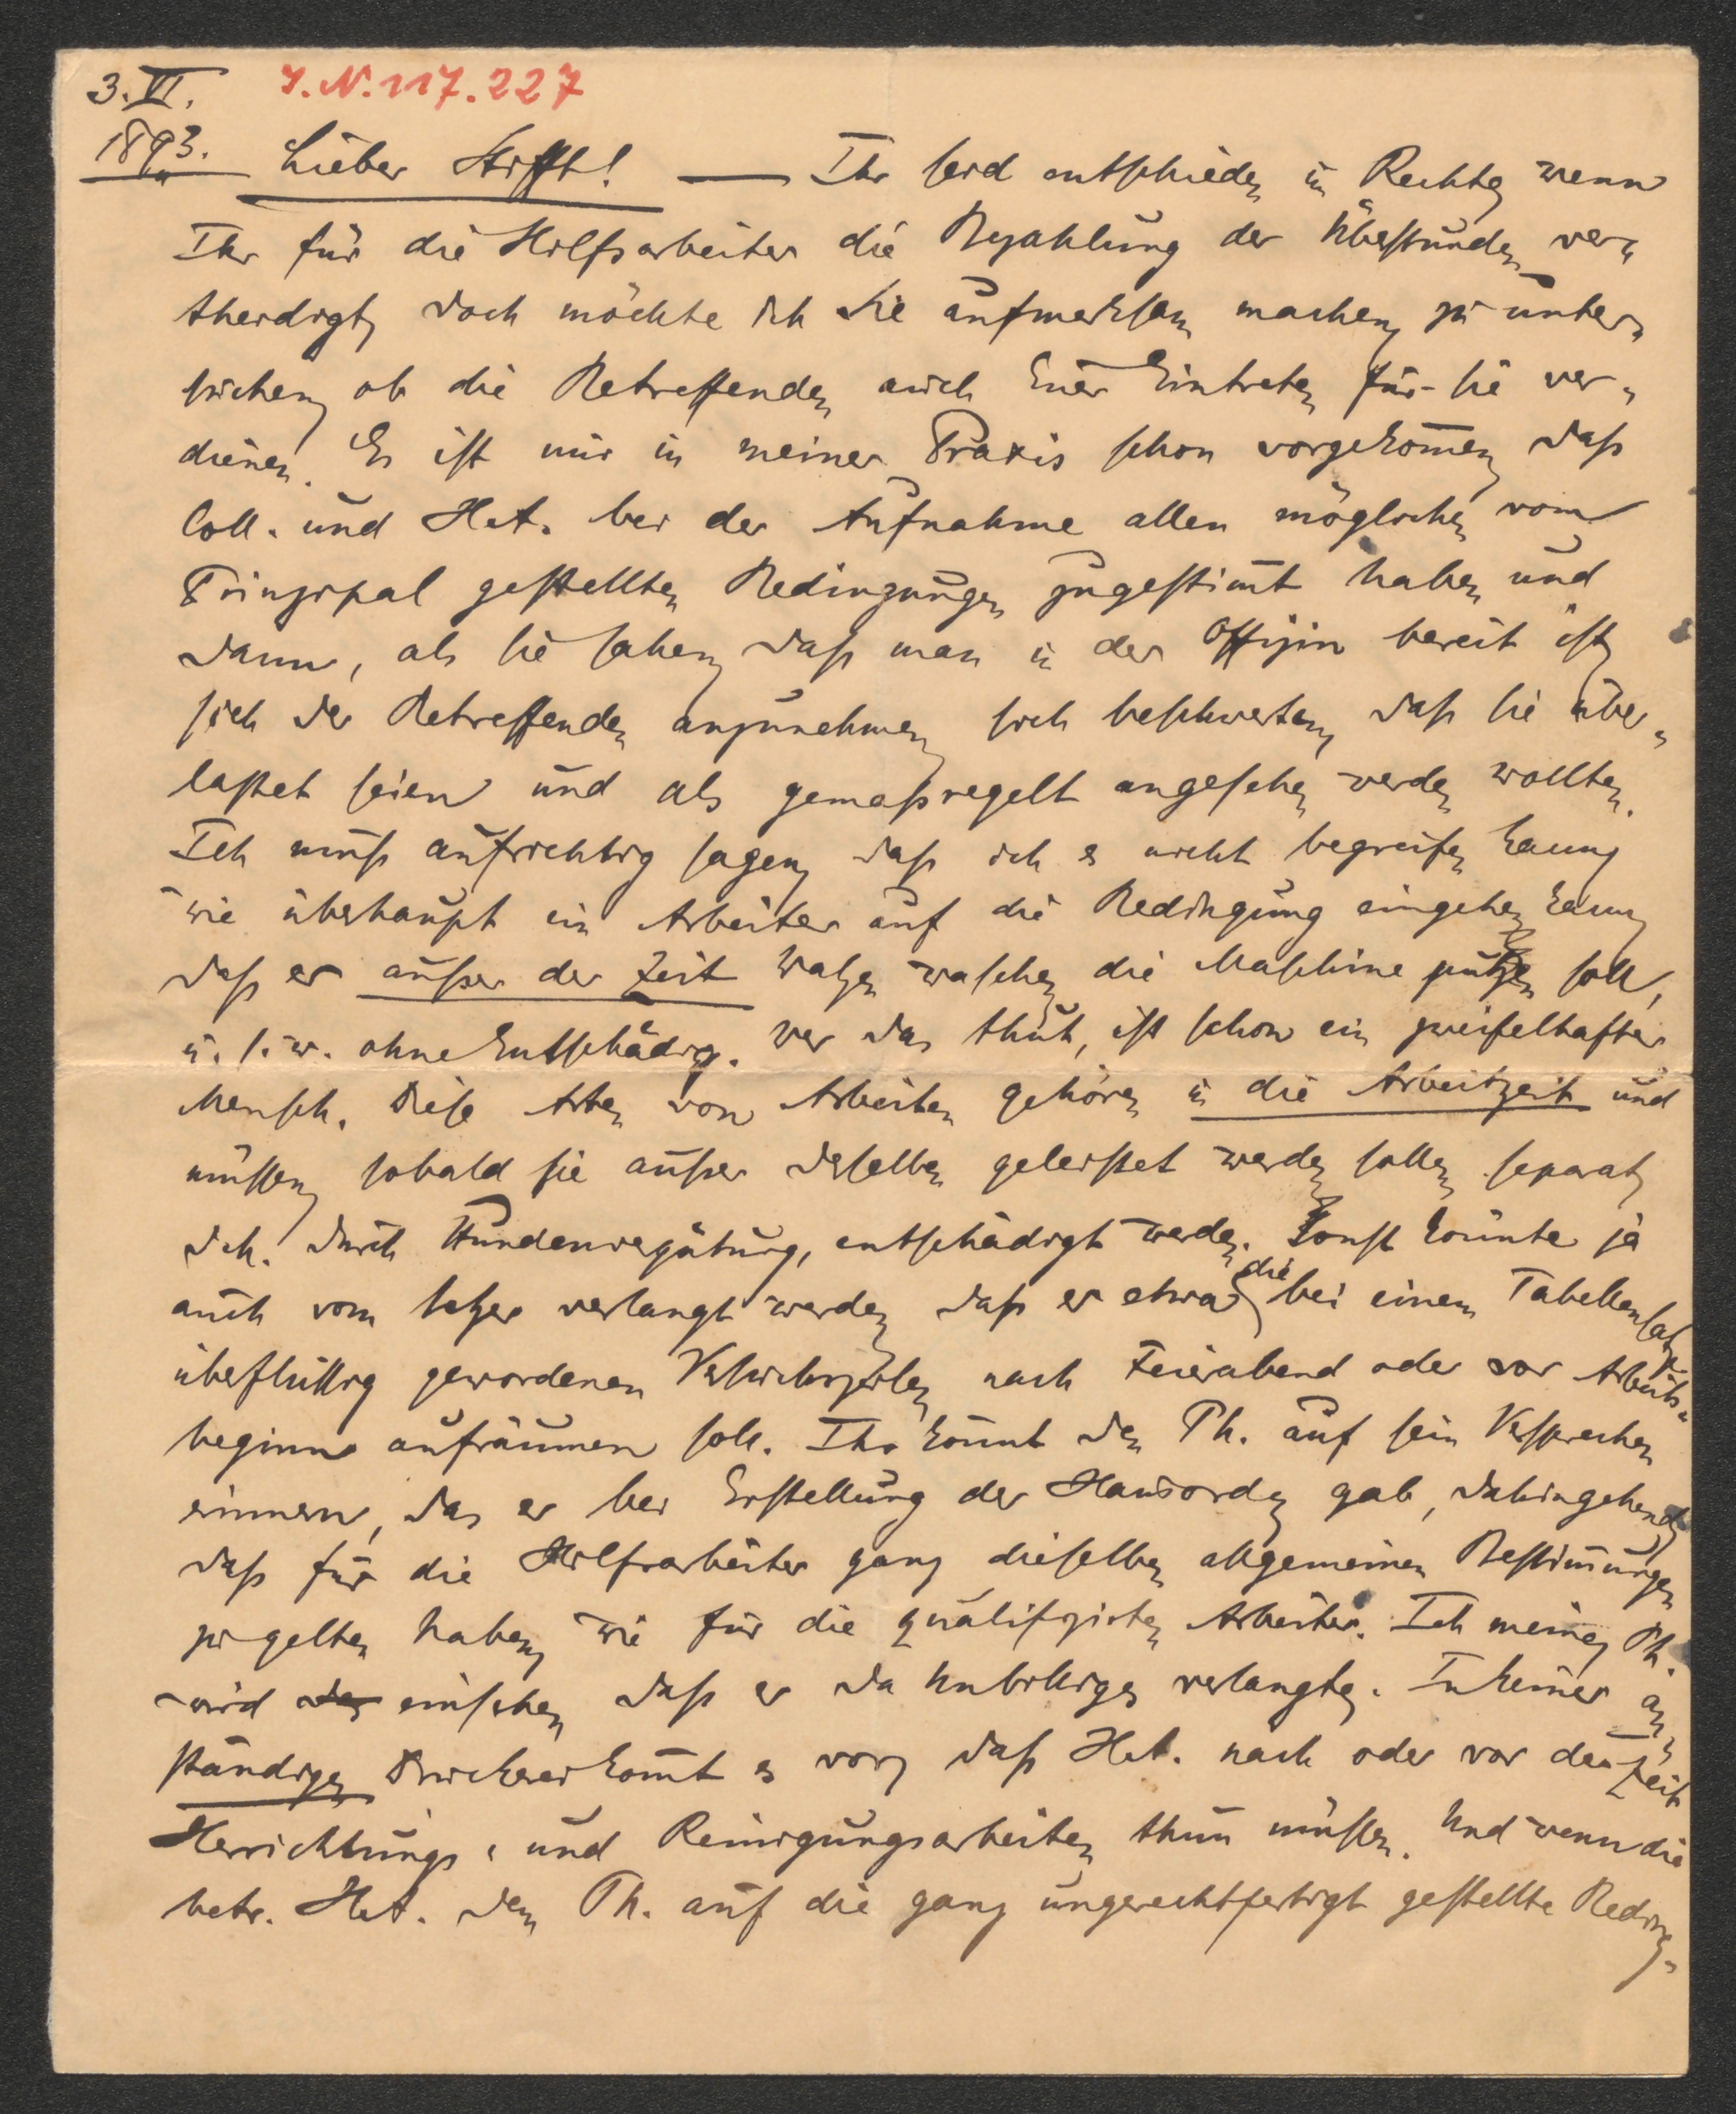 3. VI. J. N. 117.227
1893. Lieber Stifft! — Ihr seid entschieden im Rechte, wenn
Ihr für die Hilfsarbeiter die Bezahlung der Überstunden ver-
theidigt, doch möchte ich Sie aufmerksam machen, zu unter-
suchen, ob die Betreffenden auch Euer Eintreten für sie ver-
dienen. Es ist mir in meiner Praxis schon vorgekommen, daß
Coll. und H.A. bei der Aufnahme allen möglichen vom
Prinzipal gestellten Bedingungen zugestimmt haben und
dann, als sie sahen, daß man in der Offizin bereit ist,
sich der Betreffenden anzunehmen, sich beschwerten, daß sie über-
lastet seien und als gemaßregelt angesehen werden wollten.
Ich muß aufrichtig sagen, daß ich es nicht begreifen kann,
wie überhaupt ein Arbeiter auf die Bedingung eingehen kann,
daß er außer der Zeit Walzen waschen, die Maschine putzen soll,
u. s. w. ohne Entschädig. Wer das thut, ist schon ein zweifelhafter
Mensch. Diese Arten von Arbeiten gehören in die Arbeitzeit und
müssen, sobald sie außer derselben geleistet werden sollen, separat,
d. h. durch Stundenvergütung, entschädigt werden. Sonst könnte ja
auch vom Setzer verlangt werden, daß er etwa die bei einem Tabellensatz
überflüssig gewordenen nach Feierabend oder vor Arbeits-
beginn aufräumen soll. Ihr könnt den Th. auf sein Versprechen
erinnern, das er bei Erstellung der Hausordg gab, dahingehend,
daß für die Hilfsarbeiter ganz dieselben allgemeinen Bestimmungen
zu gelten haben, wie für die qualifizirten Arbeiter. Ich meine, Th.
wird einsehen, daß er da Unbilliges verlangte. In keiner an-
ständigen Druckerei kommt es vor, daß H.A. nach oder vor der Zeit
Herrichtungs- und Reinigungsarbeiten thun müssen. Und wenn die
betr. H.A. dem Th. auf die ganz ungerechtfertigt gestellte Beding-